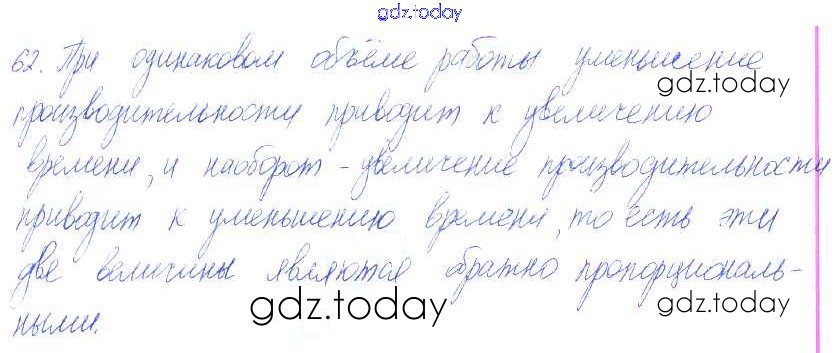 gdz.today
62. При одинаковом объёме работы уменьшение
gdz.today
производительности приводит к увеличению
времени, и наоборот - увеличение производительности
приводит к уменьшению времени, то есть эти
две величины являются обратно пропорциональ-
gdz.today
gdz.today
ными.